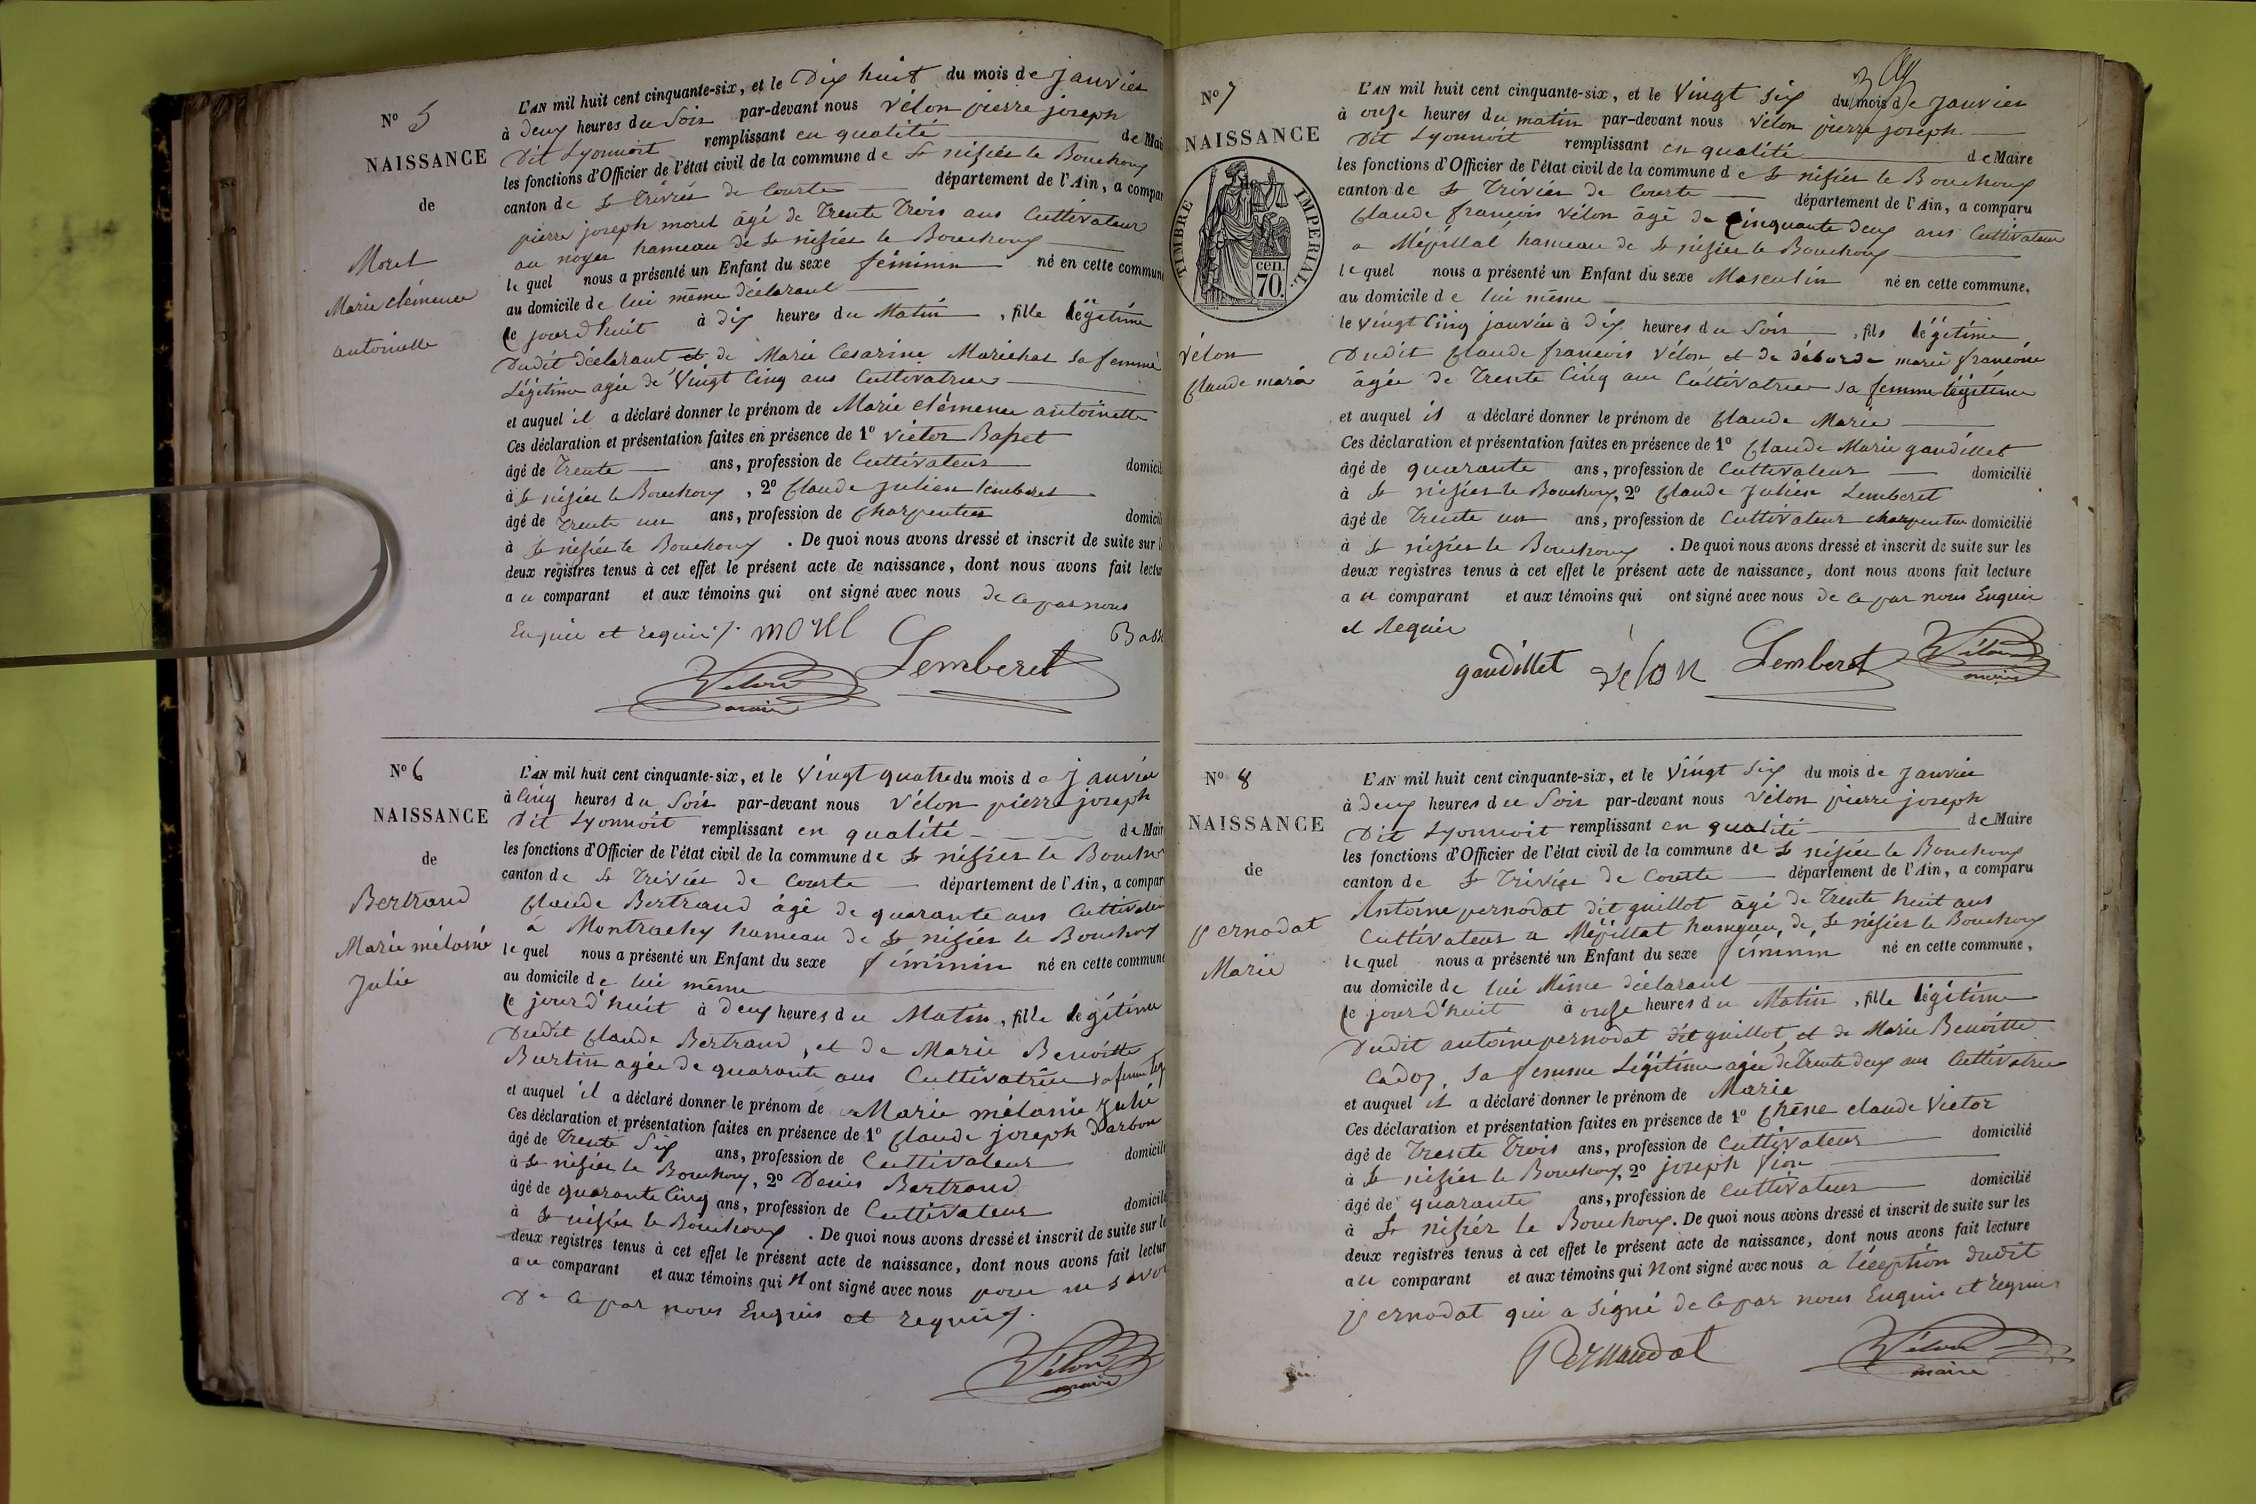 N° 5
NAISSANCE
de
Morel
Marie clémence
antoinette
L'AN mil huit cent cinquante-six, et le Dix huit du mois de janvier
à Deux heures du Soir par-devant nous Vélon pierre joseph
Dit Lyonnoit remplissant en qualité de Mai
les fonctions d'Officier de l'état civil de la commune de St nifiér le Bouchoux
canton de St Triviér de Courte département de l'Ain, a compar
pierre joseph morel âgé de Trente Trois ans Cultivateur
au noyer hameau de St nifiér le Bouchoux
le quel nous a présenté un Enfant du sexe féminin né en cette commune
au domicile de lui même déclarant
Ce jourd'huit à dix heures du Matin, fille légitime
Dudit déclarant et de Marie Cesarine Marichat sa femme
Légitime agée de Vingt Cinq ans Cultivatrice
et auquel il a déclaré donner le prénom de Marie clémence antoinette
Ces déclaration et présentation faites en présence de 1° victor Basset
âgé de Trente ans, profession de Cultivateur domicili
à St nifiér le Bouchoux, 2° Claude Julien lemberet
âgé de Trente un ans, profession de Charpentier domicili
à St nifiér le Bouchoux. De quoi nous avons dressé et inscrit de suite sur l
deux registres tenus à cet effet le présent acte de naissance, dont nous avons fait lectur
au comparant et aux témoins qui ont signé avec nous de ce par nous
Enquis et requis /. morel Lemberet Basse
Vélon
maire
N° 6
NAISSANCE
de
Bertrand
Marie mélanie
Julie
L'AN mil huit cent cinquante-six, et le Vingt quatre du mois de janvier
à Cinq heures du Soir par-devant nous Vélon pierre joseph
Dit Lyonnoit remplissant en qualité de Mair
les fonctions d'Officier de l'état civil de la commune de St nifiér le Bouchou
canton de St Triviér de Courte département de l'Ain, a compar
Claude Bertrand âgé de quarante ans Cultivateur
à Montrachy hameau de St nifiér le Bouchoux
le quel nous a présenté un Enfant du sexe féminin né en cette commune
au domicile de lui même
Ce jourd'huit à deux heures du Matin, fille légitime
Dudit Claude Bertrand, et de Marie Benoitte
Burtin agée de quarante ans Cultivatrice sa femme lég
et auquel il a déclaré donner le prénom de Marie mélanie Julie
Ces déclaration et présentation faites en présence de 1° Claude joseph Darbon
âgé de Trente Six ans, profession de Cultivateur domicili
à St nifiér le Bouchoux, 2° Denis Bertrand
âgé de quarante Cinq ans, profession de Cultivateur domicilé
à St nifiér le Bouchoux. De quoi nous avons dressé et inscrit de suite sur le
deux registres tenus à cet effet le présent acte de naissance, dont nous avons fait lectur
au comparant et aux témoins qui N'ont signé avec nous pour ne savoi
De ce par nous Enquis et requis /.
Vélon
maire
N° 7
NAISSANCE
TIMBRE IMPERIAL.
70. cen.
Vélon
Claude marie
L'AN mil huit cent cinquante-six, et le Vingt Six du mois de Janvier
à onze heures du matin par-devant nous Vélon pierre joseph
Dit Lyonnoit remplissant en qualité de Maire
les fonctions d'Officier de l'état civil de la commune de St nifiér le Bouchoux
canton de St Triviér de Courte département de l'Ain, a comparu
Claude françois Vélon âgé de Cinquante deux ans Cultivateur
a Mépillat hameau de St nifiér le Bouchoux
le quel nous a présenté un Enfant du sexe Masculin né en cette commune,
au domicile de lui même
le Vingt Cinq janvier à dix heures du Soir, fils légitime
Dudit Claude françois Vélon et de déborde marie françoise
âgée de Trente Cinq ans Cultivatrice sa femme légitime
et auquel il a déclaré donner le prénom de Claude Marie
Ces déclaration et présentation faites en présence de 1° Claude Marie gaudillet
âgé de quarante ans, profession de Cultivateur domicilié
à St nifiér le Bouchoux, 2° Claude Julien Lemberet
âgé de Trente un ans, profession de Cultivateur charpentier domicilié
à St nifiér le Bouchoux. De quoi nous avons dressé et inscrit de suite sur les
deux registres tenus à cet effet le présent acte de naissance, dont nous avons fait lecture
au comparant et aux témoins qui ont signé avec nous de ce par nous Enquis
et Requis
gaudillet vélon Lemberet Vélon
maire
N° 8
NAISSANCE
de
pernodat
Marie
L'AN mil huit cent cinquante-six, et le Vingt Six du mois de Janvier
à Deux heures du Soir par-devant nous Vélon pierre joseph
Dit Lyonnoit remplissant en qualité de Maire
les fonctions d'Officier de l'état civil de la commune de St nifiér le Bouchoux
canton de St Triviér de Courte département de l'Ain, a comparu
Antoine pernodat dit guillot âgé de Trente huit ans
Cultivateur a Mépillat hameau, de, St nifiér le Bouchoux
le quel nous a présenté un Enfant du sexe féminin né en cette commune,
au domicile de lui Même déclarant
Ce jourd'huit à onze heures du Matin, fille légitime
Dudit antoine pernodat dit guillot, et de Marie Benoitte
Cadoz, sa femme Légitime agée de Trente deux ans Cultivatrice
et auquel il a déclaré donner le prénom de Marie
Ces déclaration et présentation faites en présence de 1° Chêne claude Victor
âgé de Trente Trois ans, profession de Cultivateur domicilié
à St nifiér le Bouchoux, 2° joseph Vion
âgé de quarante ans, profession de Cultivateur domicilié
à St nifiér le Bouchoux. De quoi nous avons dressé et inscrit de suite sur les
deux registres tenus à cet effet le présent acte de naissance, dont nous avons fait lecture
au comparant et aux témoins qui N'ont signé avec nous a léception dudit
pernodat qui a Signé de ce par nous Enquis et requis
Pernaudat Vélon
maire